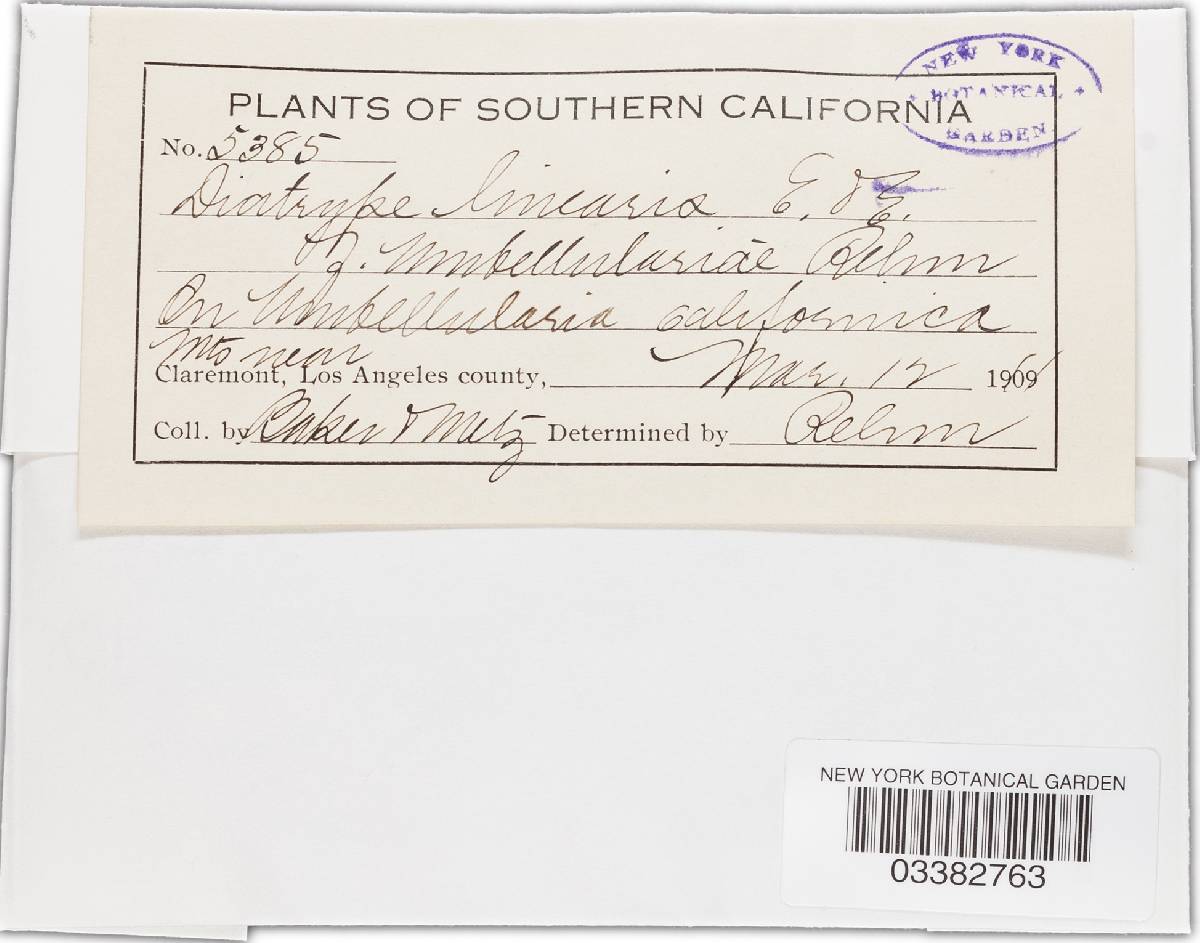 NEW YORK
BOTANICAL
GARDEN
PLANTS OF SOUTHERN CALIFORNIA
No. 5385
Diatrype linearis E. & E.
f. Umbellulariae Rehm
On Umbellularia californica
Mts near
Claremont, Los Angeles county, Mar. 12 1909
Coll. by Baker & Metz Determined by Rehm
NEW YORK BOTANICAL GARDEN
03382763